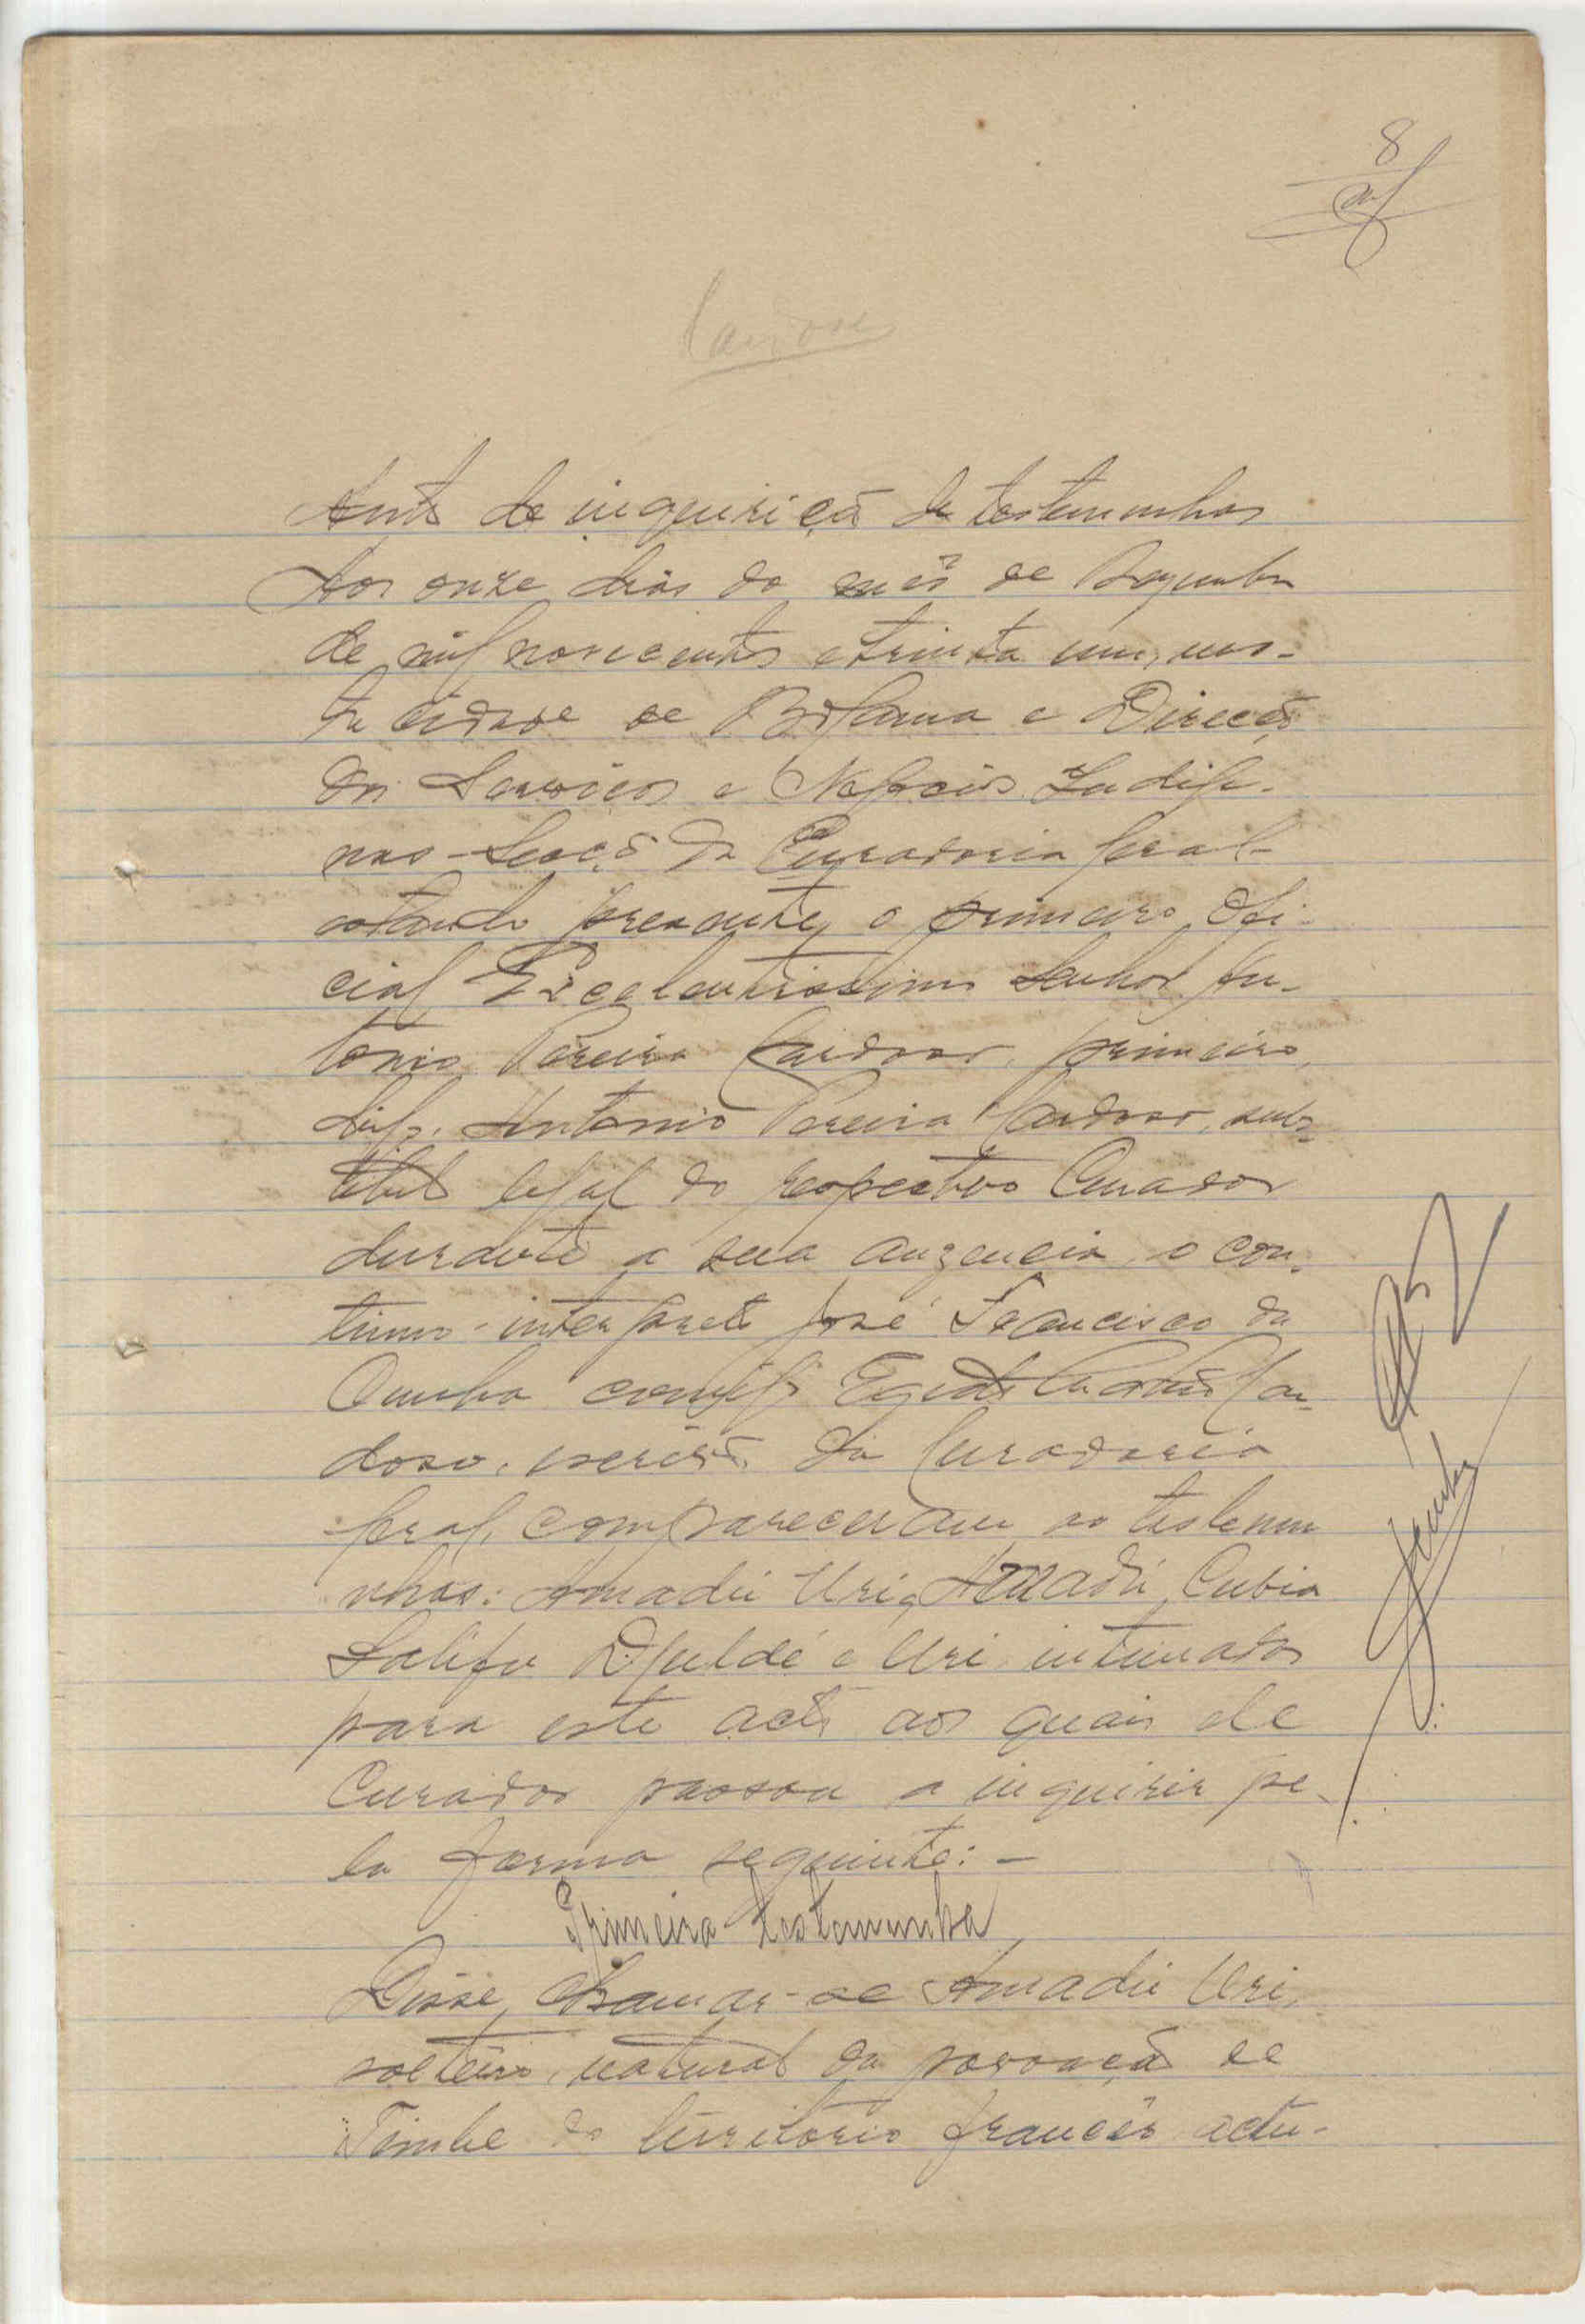 8
Cardoso
Auto de inquirição de testemunhas
Aos onze dias do mês de Dezembro
de mil novecentos e trinta um, nes-
ta cidade de Bolama e Direcção
dos Serviços e Negocios Indige-
nas - Secção da Curadoria Geral -
estando presente, o primeiro ofi-
cial Excelentissimo Senhor An-
tonio Pereira Cardoso, primeiro,
digo, Antonio Pereira Cardoso, subs-
tituto legal do respectivo Curador
durante a sua auzencia, o con-
tinuo-interprete José Francisco da
Cunha comigo Car-
doso, escrivão da Curadoria
Geral, compareceram as testemu
nhas: Amadú Uri, Amadú Cubia
Salifo Djuldé e Uri intimados
para este acto aos quais ele
Curador passou a inquirir pe-
la forma seguinte: -
Primeira testemunha
Disse, chamar-se Amadú Uri,
solteiro, natural da povoação de
Timbe do território francês actu-